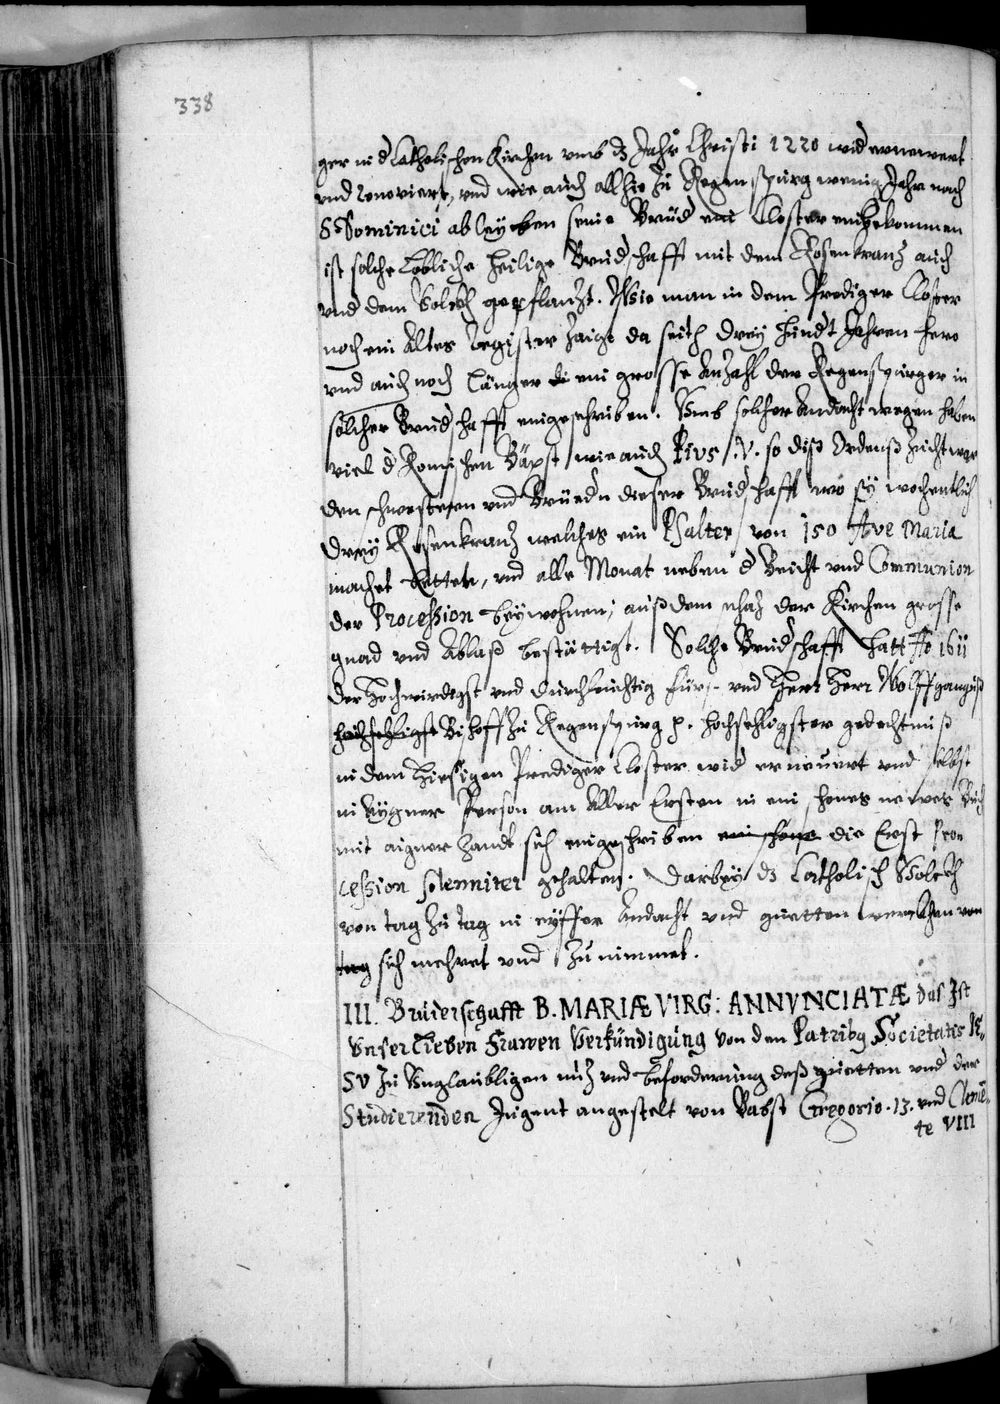 338
ger in d Catholischen Kirchen umb dz Jahr Christi 1220 wid ernewert
und renoviert, und wie auch allhie zu Regenspurg wenig Jahr nach
S. Dominici ableyben seine Brüd ein Closter einbekommen
ist solche Lobliche heilige Brudschafft mit dem Rosenkranz auch
und dem Volckh gepflanzt. Wie man in dem Prediger Closter
noch ein Altes Register zaigt da seith drey hundt Jahren hero
und auch noch länger di ein grosse Anzahl der Regenspurger in
solcher Brudschafft eingeschriben. Umb solcher Andacht wegen haben
viel d Romischen Bäpst wie auch Pius .V. so diß Ordenß
den schwestern und Brüedn dieser Brudschafft wo sy wochentlich
drey Rosenkranz welches ein Psalter von 150 Ave Maria
machet betten, und alle Monat neben d Beicht und Communion
der Procession beywohnen, auß dem schaz der Kirchen grosse
gnad und Ablaß bestättigt. Solche Brudschafft hatt Ao 1611
der Hochwirdigst und durchleichtig Fürst und Herr Herr Wolffgangus
Bischoff zu Regenspurg p. hochsehligster gedechtniß
in dem hiesigen Prediger Closter wid erneuert und selbst
in Aygner Person am Aller Ersten in ein schenes newes Buch
mit aigner handt sich eingeschriben ein schene die Erst Pro
cession solenniter gehalten. Darbey dz Catholisch Volckh
von tag zu tag in eyffer Andacht und guetten werckhen von
tag sich mehret und zu nimmet.
III. Bruderschafft B. MARIÆ VIRG: ANNVNCIATÆ das Ist
Unser Lieben Frawen Verkündigung von den Patribg Societatis IE
SV zu Unglaubligen nuz und beforderung deß guetten und der
Studierenden Jugent angestelt von Babst Gregorio .13. und Cleme
te VIII